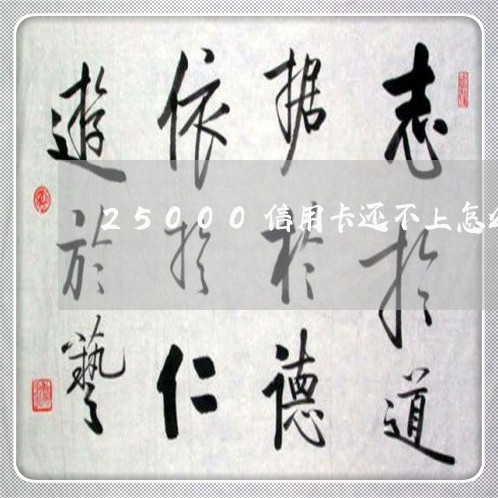 志於道
据於德
依於仁
遊於藝
25000信用卡还不上怎